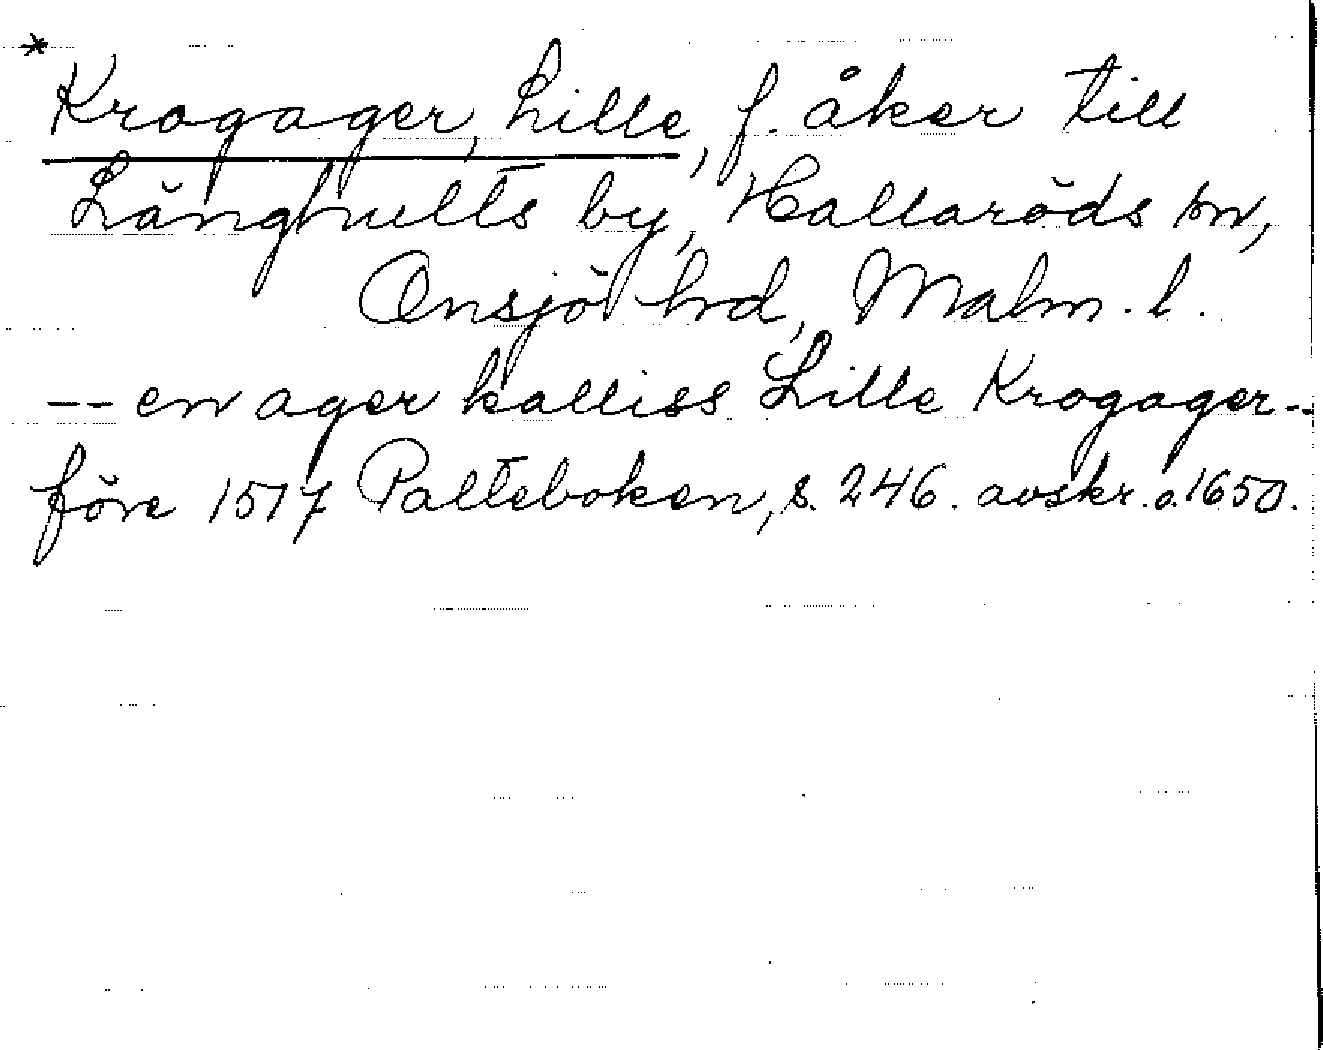 * Krogager, Lille, f. åker till
Långhults by, Hallaröds sn,
Onsjö hrd, Malm. l.
-- en ager kalliss Lille Krogager --
före 1517 Palteboken, s. 246. avskr. o. 1650.